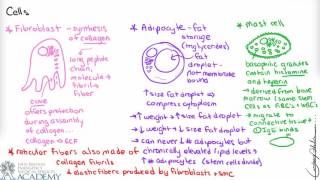 Cells
* Fibroblast - synthesis
of collagen
↓
long peptide
chain,
molecule →
fibrils →
fiber
CURVE
offers protection
during assembly
of collagen
collagen → ECF
* reticular fibers also made of
collagen fibrils
* elastic fibers produced by fibroblasts + SMC
* Adipocyte - fat
storage
(triglycerides)
fat
droplet-
not membrane
bound
↑ size fat droplet →
cytoplasm
compression
↑ weight → ↑ size fat droplet
↓ weight → ↓ size fat droplet
→ can never ↓ # adipocytes but
chronically elevated lipid levels ↑
# adipocytes (stem cells divide)
* Mast cell
basophilic granules
contain histamine
and heparin
→ derived from bone
marrow (same stem
cells as RBCs + WBCs)
→ migrate to
connective tissue
→ IgE binds
ACADEMY